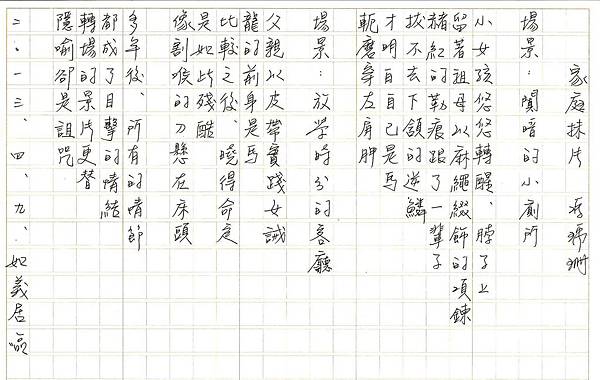 家庭抹片 馮瑀珊
場景：闃暗的小廁所
小女孩悠悠轉醒、脖子上
留著祖母以麻繩綴飾的項鍊
赭紅的勒痕跟了一輩子
拔不去下頷的逆鱗
才明白自己是馬
軛磨穿左肩胛
場景：放學時分的客廳
父親以皮帶實踐女誡
龍的前身是馬
比較之後、曉得命定
是如此殘酷
像割喉的刀懸在床頭
多年後、所有的情節
都成了目擊的情結
轉場的景片更替
隱喻卻是詛咒
二.一三、四、九、如義居